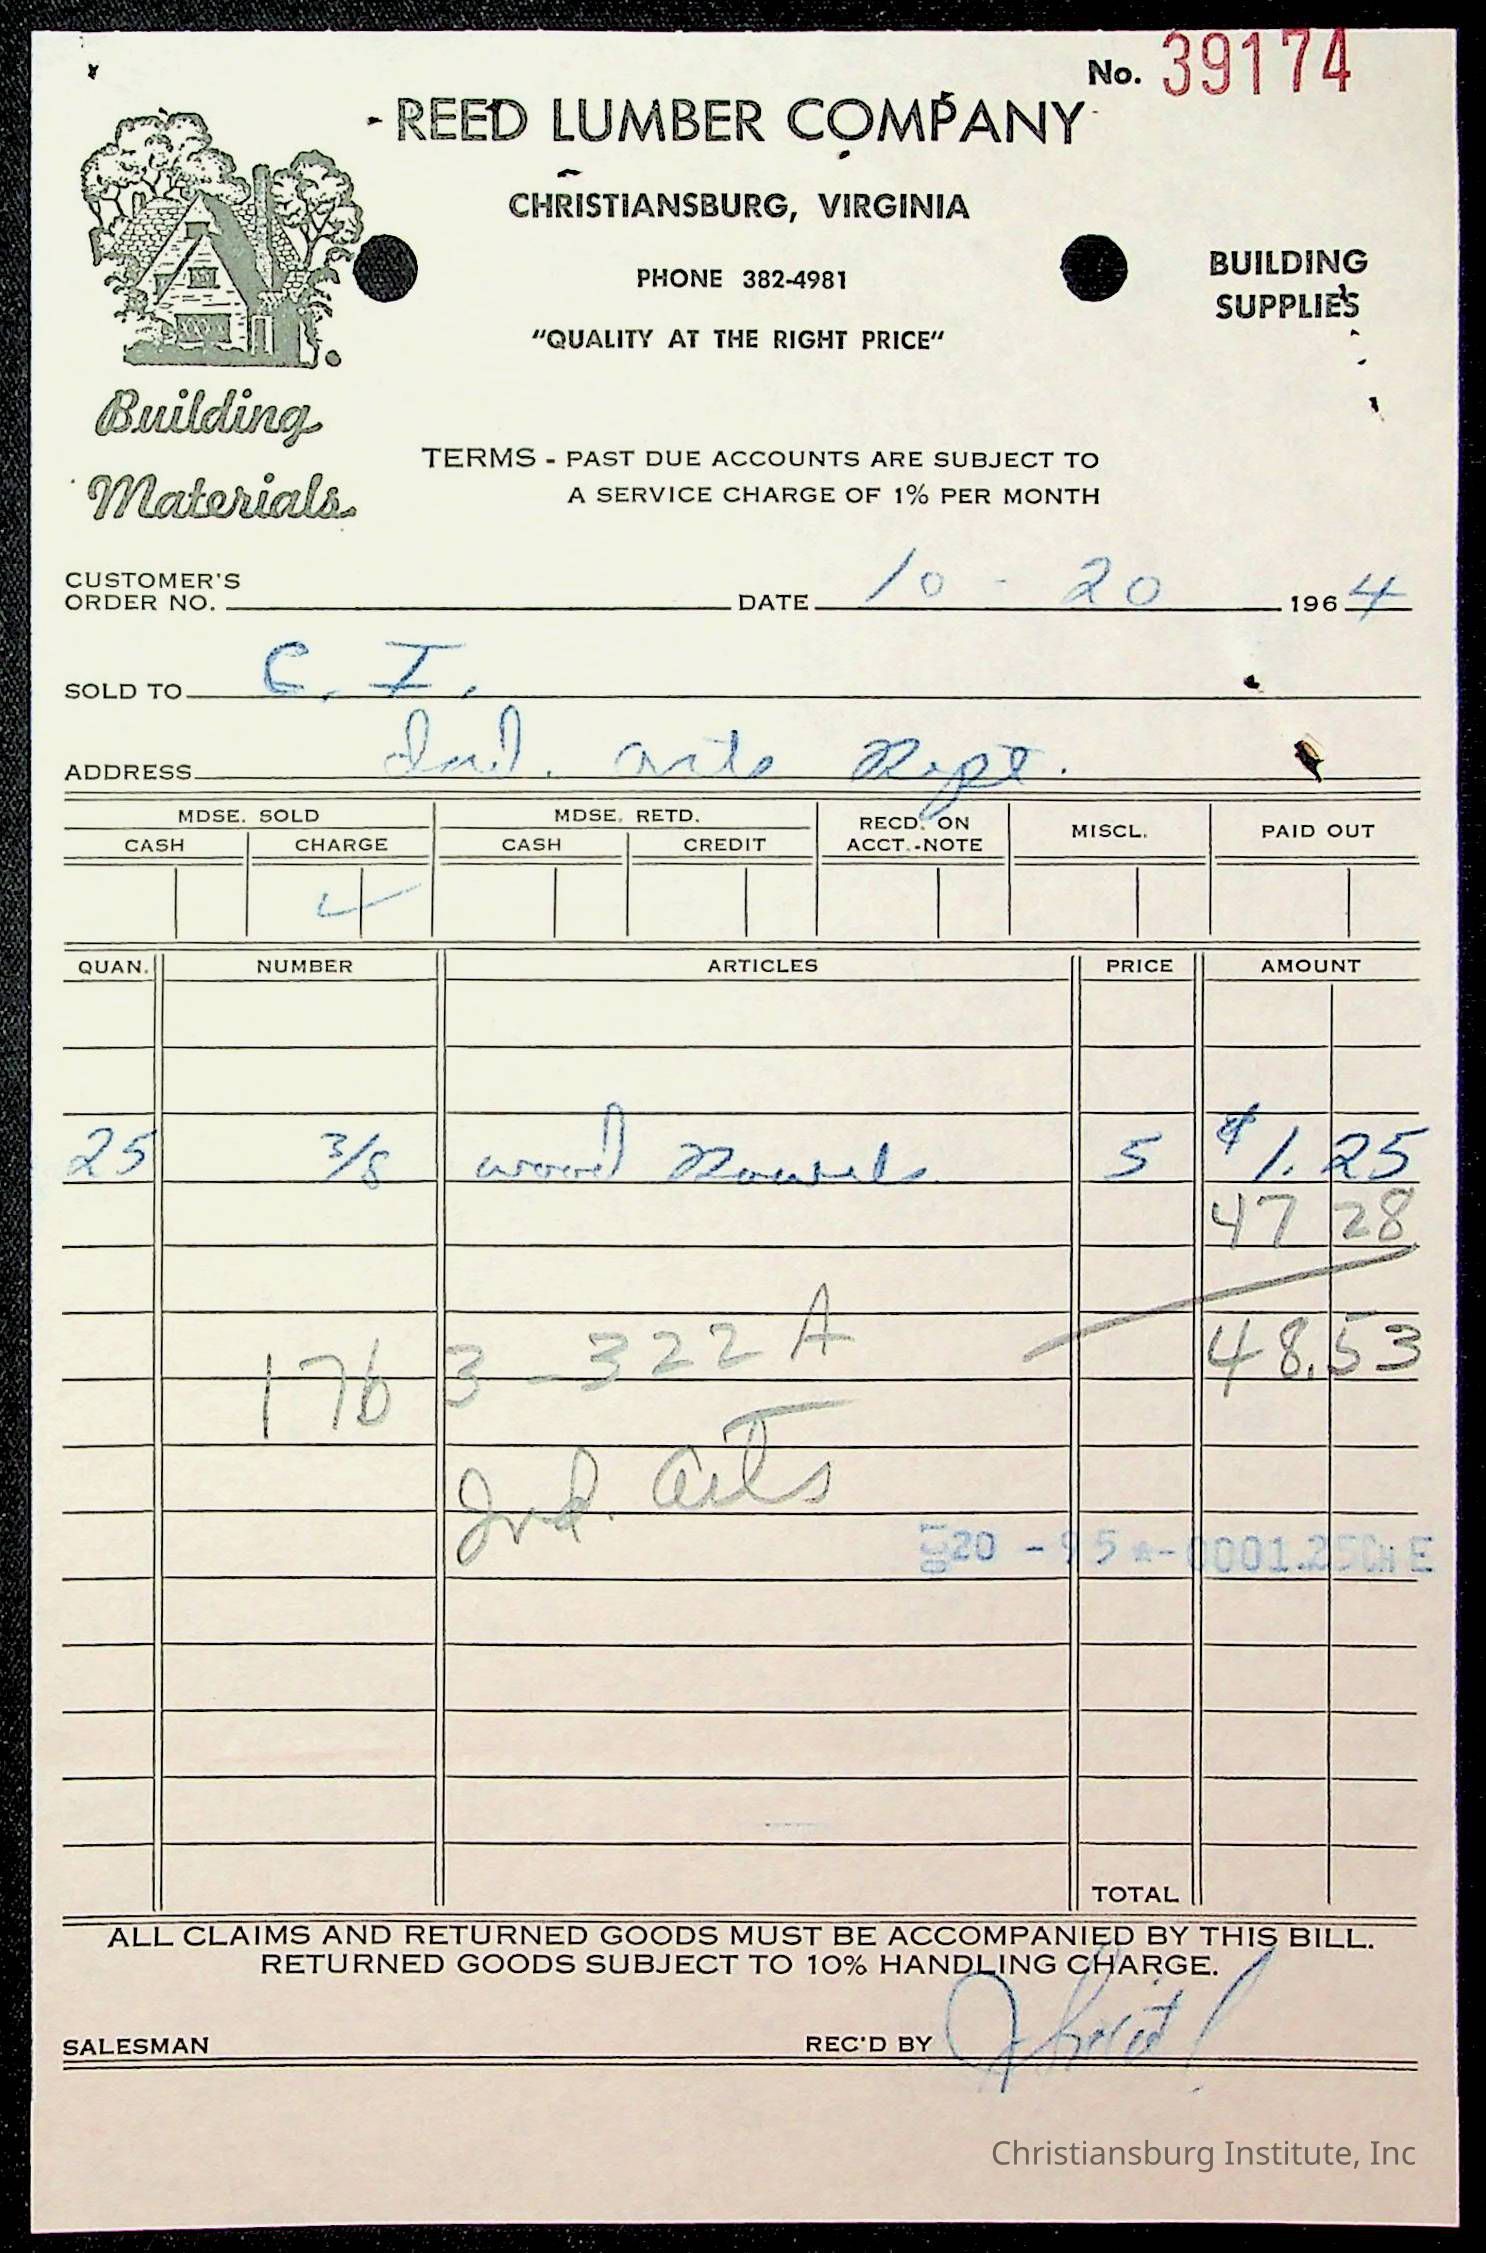 No. 39174
REED LUMBER COMPANY
CHRISTIANSBURG, VIRGINIA
PHONE 382-4981
"QUALITY AT THE RIGHT PRICE"
BUILDING
SUPPLIES
Building
Materials
TERMS - PAST DUE ACCOUNTS ARE SUBJECT TO
A SERVICE CHARGE OF 1% PER MONTH
CUSTOMER'S
ORDER NO. DATE 10 - 20 1964
SOLD TO C. I.
ADDRESS Ind. Arts Dept.
MDSE. SOLD MDSE. RETD. RECD. ON ACCT.-NOTE MISCL. PAID OUT
CASH CHARGE CASH CREDIT
QUAN. NUMBER ARTICLES PRICE AMOUNT
25 3/8 wood Dowels 5 $1.25
47 28
48.53
1763-322A
Ind. Arts
OCT 20 -95*-0001.25CH E
TOTAL
ALL CLAIMS AND RETURNED GOODS MUST BE ACCOMPANIED BY THIS BILL.
RETURNED GOODS SUBJECT TO 10% HANDLING CHARGE.
SALESMAN REC'D BY
Christiansburg Institute, Inc